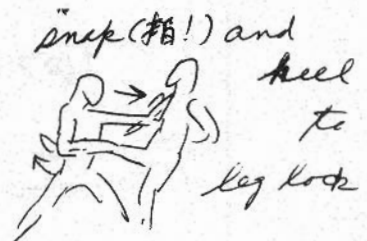 "snap (指!) and
heel
to
leg lock